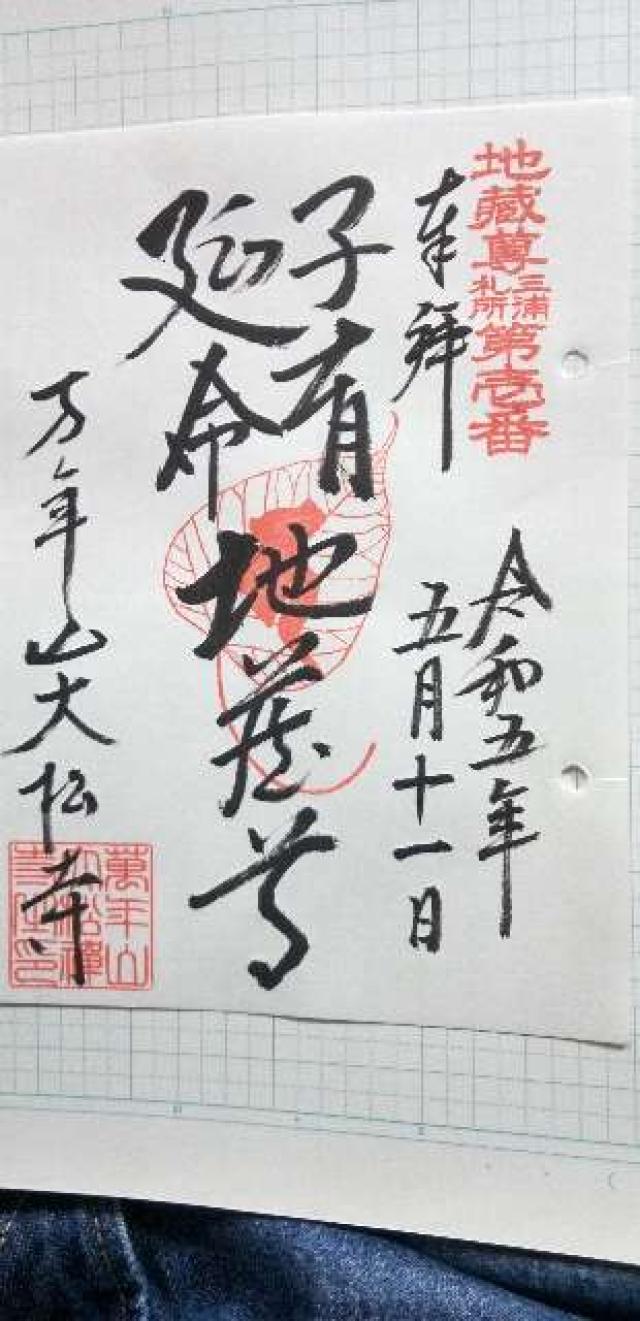 地蔵尊三浦札所第壱番
奉拝
令和五年
五月十一日
子育
延命
地蔵尊
万年山大松寺
萬年山
大松禅
寺住印